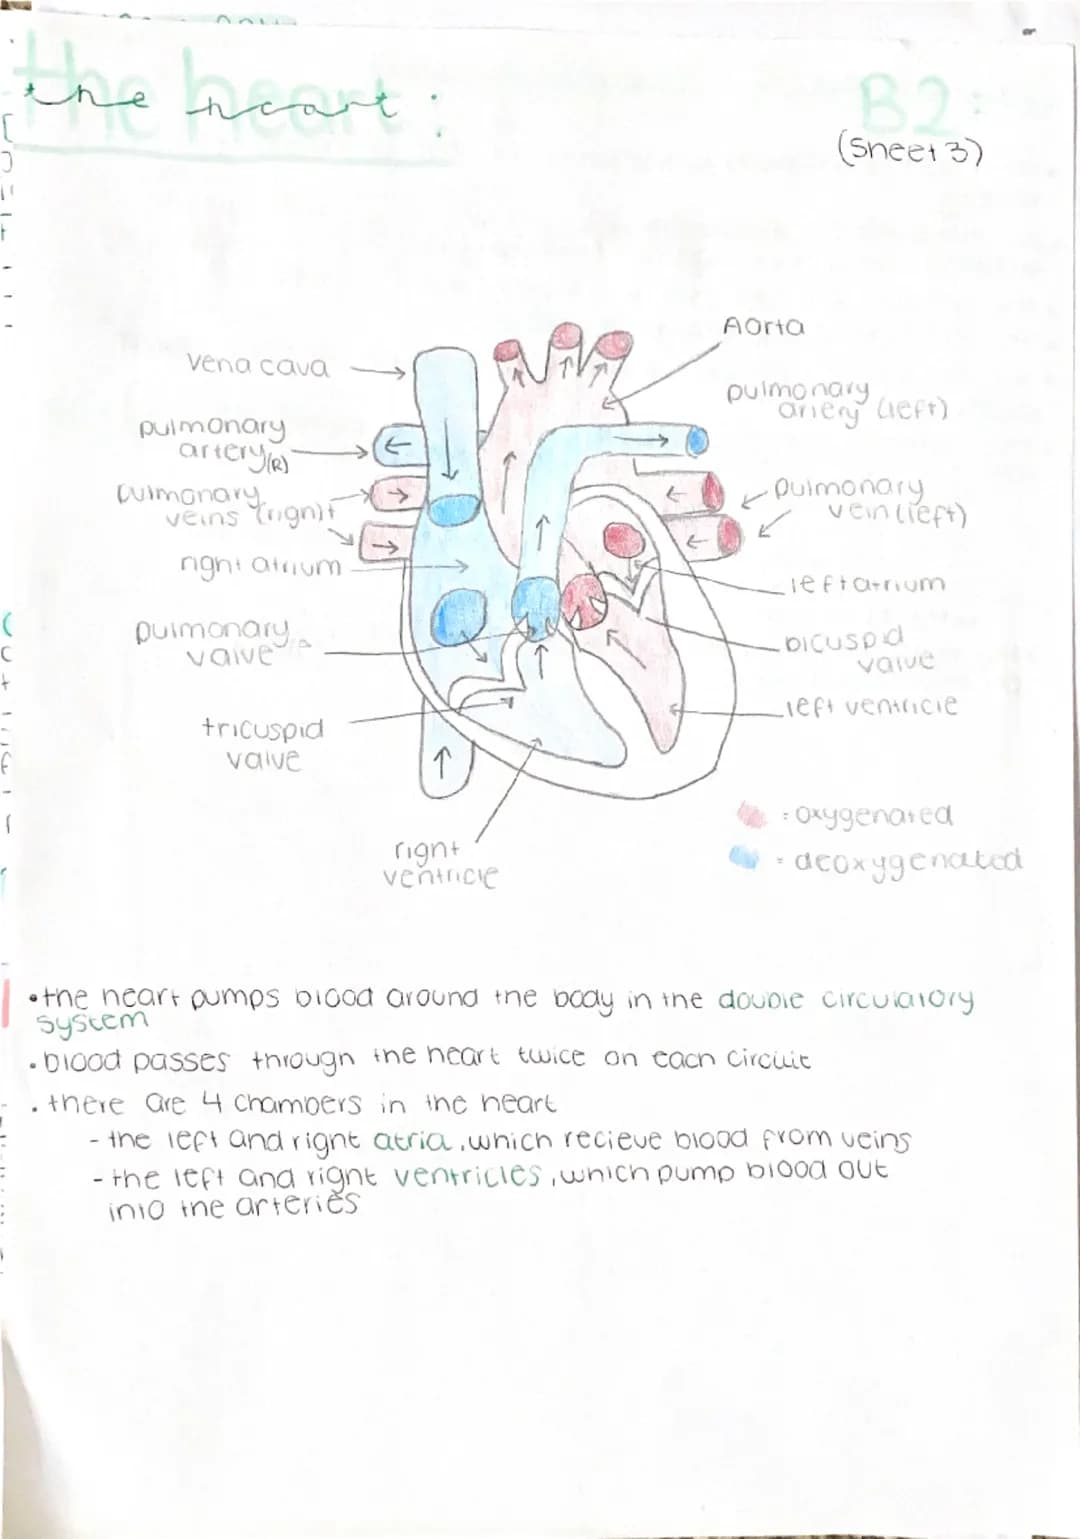 the heart:
B2:
(Sheet 3)
Aorta
vena cava
pulmonary
artery (left)
pulmonary
artery (R)
pulmonary
veins (right)
pulmonary
vein (left)
right atrium
left atrium
pulmonary
valve
bicuspid
valve
left ventricle
tricuspid
valve
= oxygenated
right
ventricle
= deoxygenated
•the heart pumps blood around the body in the double circulatory
system
•blood passes through the heart twice on each circuit
•there are 4 chambers in the heart
- the left and right atria, which recieve blood from veins
- the left and right ventricles, which pump blood out
into the arteries